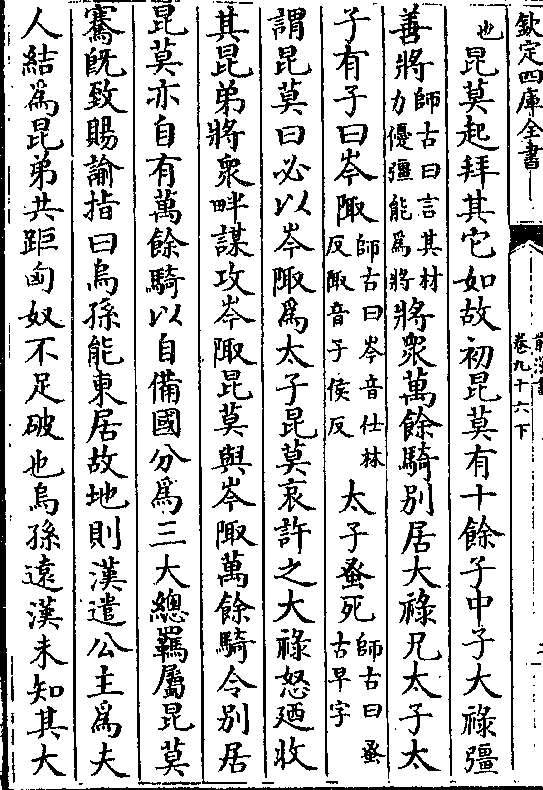 欽定四庫全書
前漢書
卷九十六下
也昆莫起拜其它如故初昆莫有十餘子中子大祿彊
善將師古曰言其材力優彊能為將將衆萬餘騎别居大祿兄太子太
子有子曰岑陬師古曰岑音仕林反陬音子侯反太子蚤死師古曰蚤古早字
謂昆莫曰必以岑陬爲太子昆莫哀許之大祿怒廼收
其昆弟將衆畔謀攻岑陬昆莫與岑陬萬餘騎令别居
昆莫亦自有萬餘騎以自備國分爲三大總羈屬昆莫
騫旣致賜諭指曰烏孫能東居故地則漢遣公主爲夫
人結爲昆弟共距匈奴不足破也烏孫遠漢未知其大